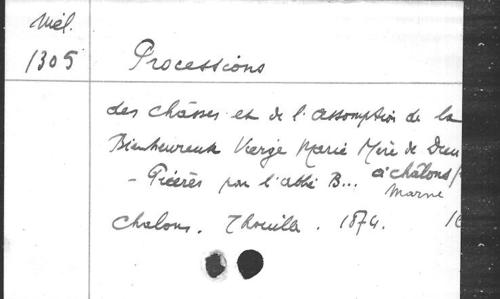 Mél.
1305
Processions
des châsses et de l'assomption de la
Bienheureuse Vierge Marie Mère de Dieu
à châlons/
- par l'abbé B...
Marne
Chalons. Thouille. 1874.